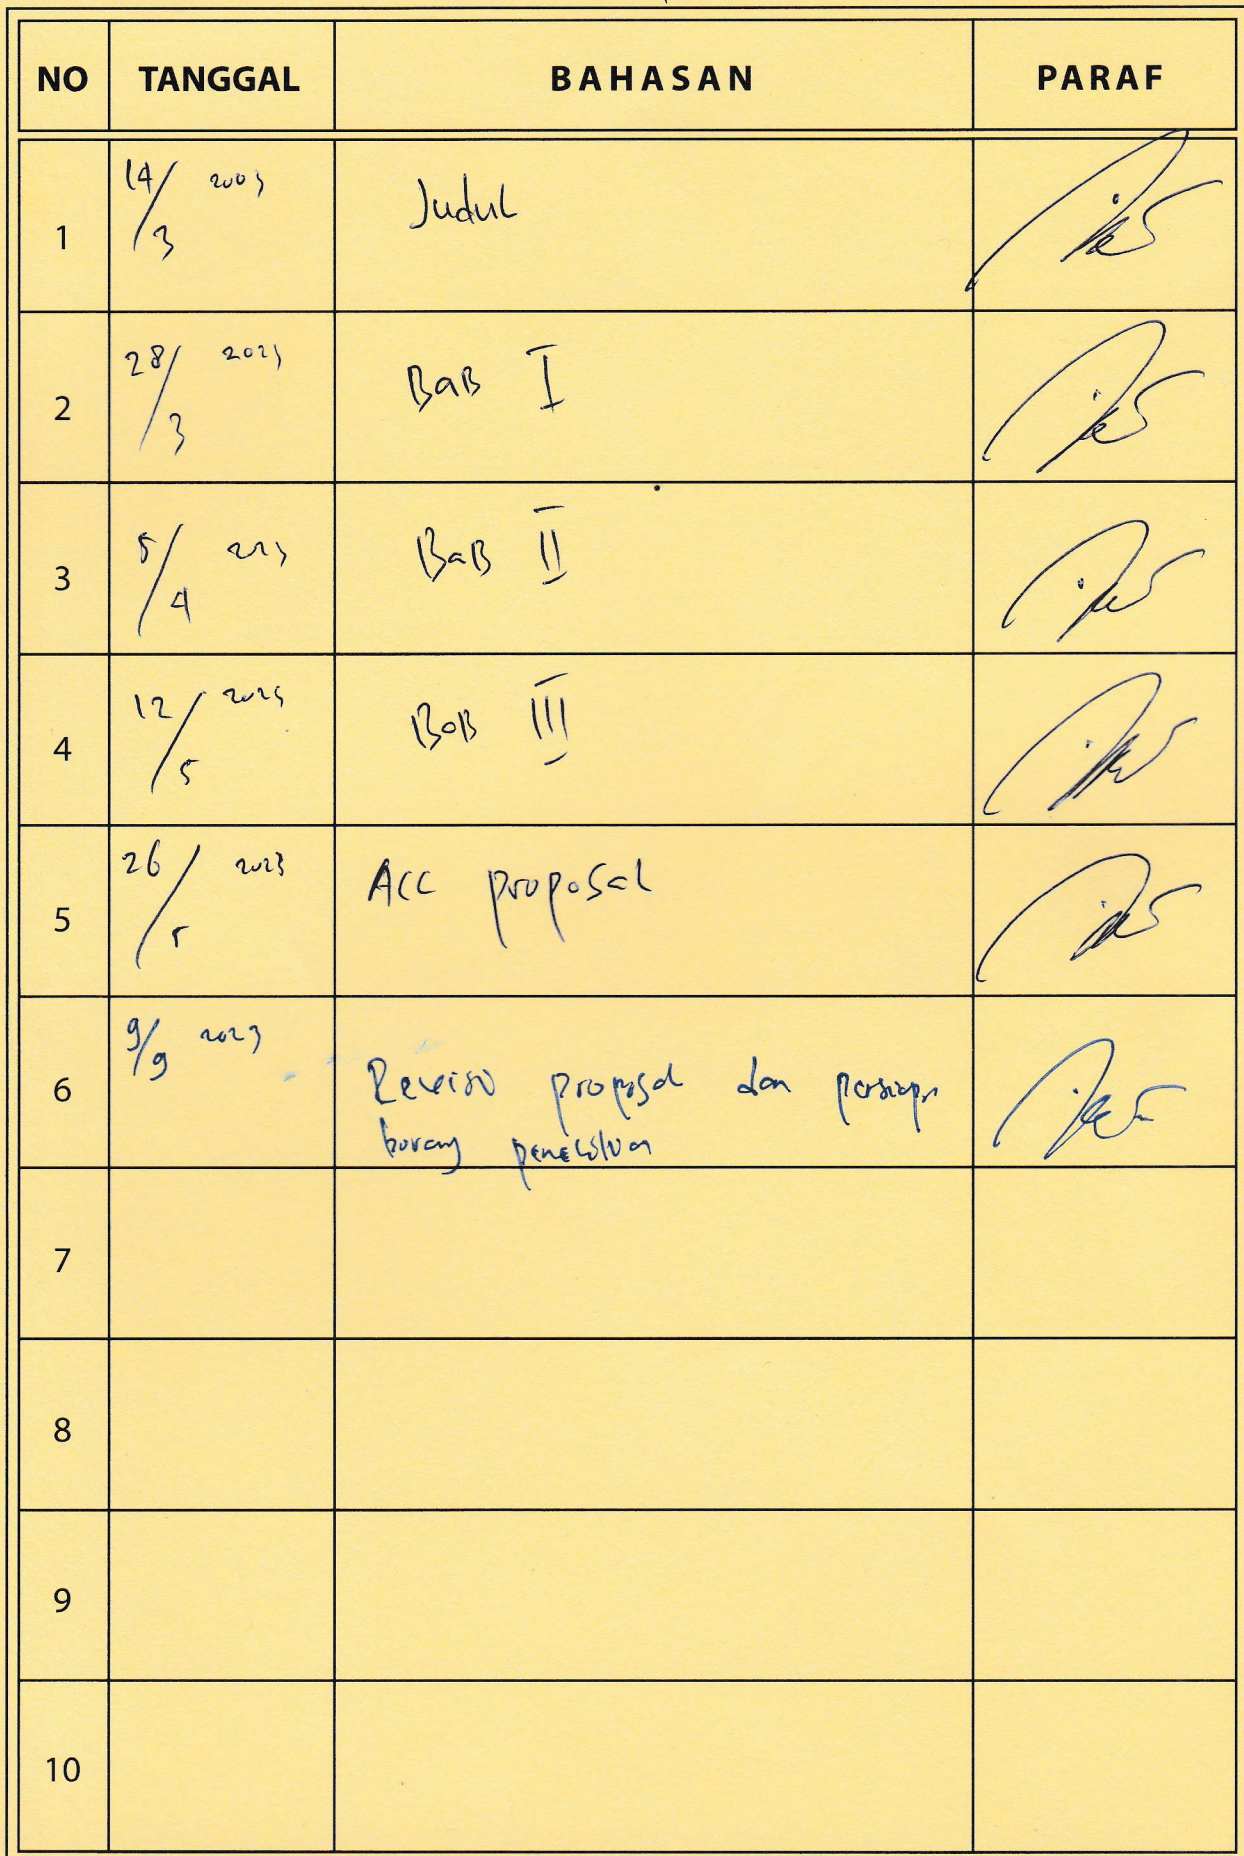 NO TANGGAL BAHASAN PARAF
1 14/3 2003 Judul
2 28/3 2023 BaB I
3 5/4 2023 BaB II
4 12/5 2023 BaB III
5 26/5 2023 ACC proposal
6 9/9 2023 proposal dan
borang
7
8
9
10